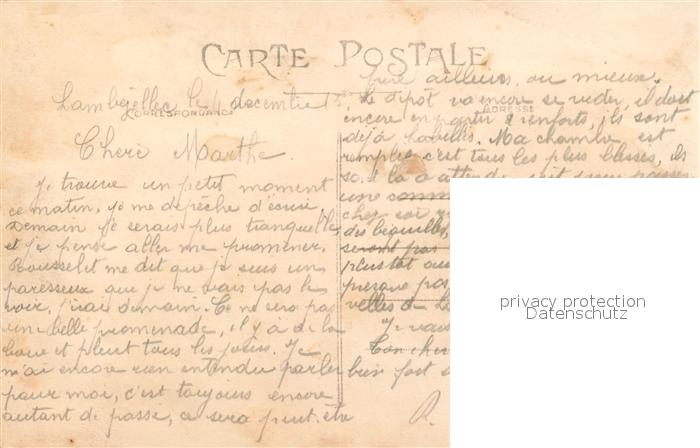 CARTE POSTALE
CORRESPONDANCE
ADRESSE
Lambezellec le 4 decembre 15
Chere Marthe.
Je trouve un petit moment
ce matin, je me depêche d'ecrire
Demain je serais plus tranquille
et je pense aller me promener.
Rousselet me dit que je suis un
paresseux que je ne vais pas le
voir, j'irai demain. Ce ne sera pas
une belle promenade, il y a de la
boue et pleut tous les jours. Je
m'ai encore rien entendu parler
pour moi, c'est toujours encore
autant de passe, ca sera peut-être
pire ailleurs, ou mieux.
Le dépôt va encore se vider, il doit
encore en partir 2 renforts, ils sont
déjà habillés. Ma chambre est
remplie c'est tous les plus blessés, ils
sont là à attendre
une
chez soi
des béquilles,
seront pas
plus tot
presque pas
velles de
Je vais
Ton cher
bien fort
R.
privacy protection
Datenschutz